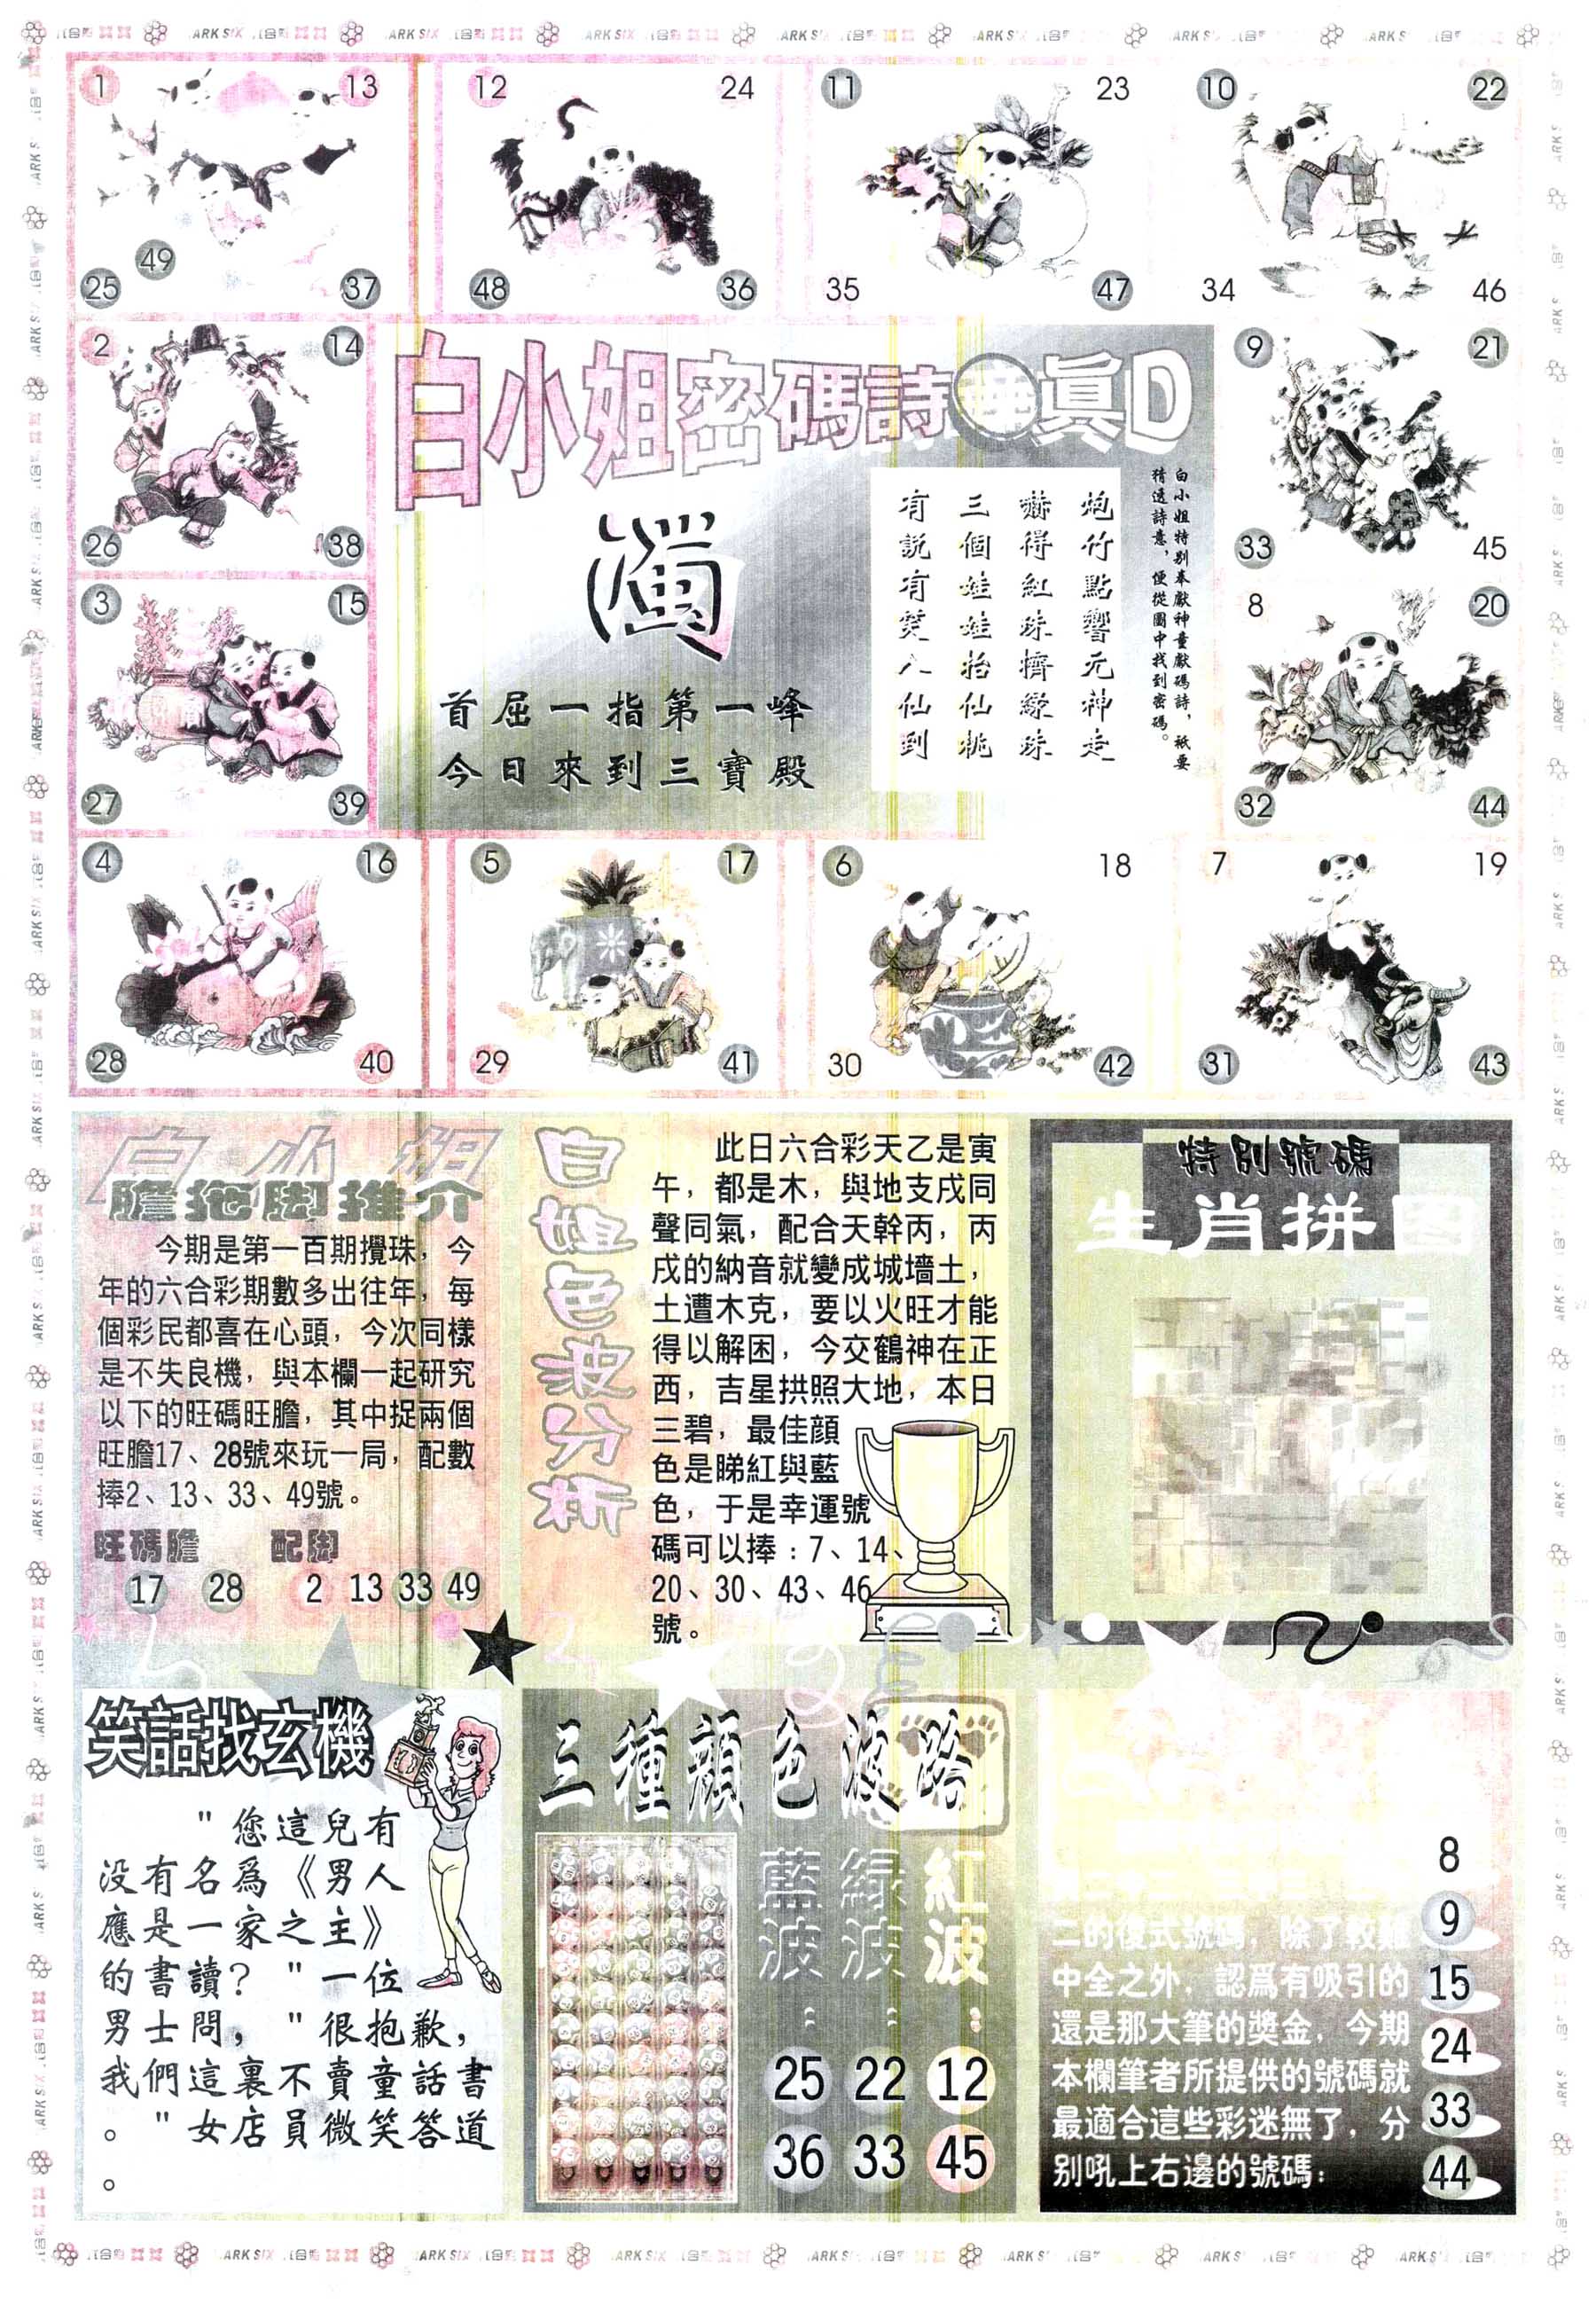 1
13
49
25
37
12
24
48
36
11
23
35
47
10
22
34
46
2
14
26
38
白小姐密碼詩
真D
濁
首屈一指第一峰
今日來到三寶殿
炮竹點響元神走
嚇得紅珠擠綠珠
三個娃娃抬仙桃
有説有笑八仙到
白小姐特别奉獻神童獻碼詩，祇要
猜透詩意，便從圖中找到密碼。
9
21
33
45
3
15
27
39
8
20
32
44
4
16
28
40
5
17
29
41
6
18
30
42
7
19
31
43
白小姐
膽拖脚推介
今期是第一百期攪珠，今
年的六合彩期數多出往年，每
個彩民都喜在心頭，今次同樣
是不失良機，與本欄一起研究
以下的旺碼旺膽，其中捉兩個
旺膽17、28號來玩一局，配數
捧2、13、33、49號。
旺碼膽 配脚
17 28 2 13 33 49
白姐色波分析
此日六合彩天乙是寅
午，都是木，與地支戌同
聲同氣，配合天幹丙，丙
戌的納音就變成城墻土，
土遭木克，要以火旺才能
得以解困，今交鶴神在正
西，吉星拱照大地，本日
三碧，最佳顔
色是睇紅與藍
色，于是幸運號
碼可以捧：7、14、
20、30、43、46
號。
特別號碼
生肖拼圖
笑話找玄機
"您這兒有
没有名爲《男人
應是一家之主》
的書讀？"一位
男士問，"很抱歉，
我們這裏不賣童話書
。"女店員微笑答道
。
三種顔色波路
藍波：
25
36
綠波：
22
33
紅波：
12
45
二的復式號碼，除了較難
中全之外，認爲有吸引的
還是那大筆的獎金，今期
本欄筆者所提供的號碼就
最適合這些彩迷無了，分
别吼上右邊的號碼：
8
9
15
24
33
44